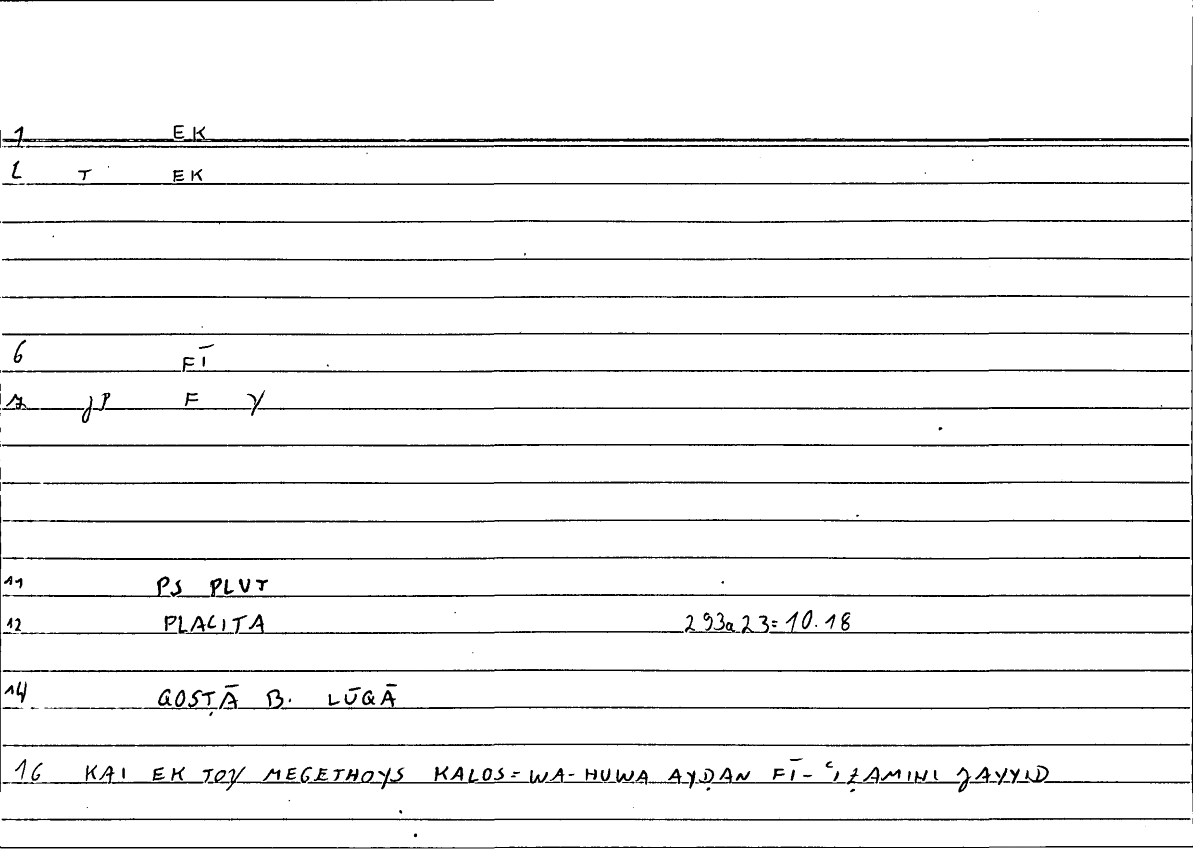 1 EK
2 T EK
6 FĪ
7 JP F Y
11 PS PLUT
12 PLACITA 293a23=10.18
14 QOSṬĀ B. LŪQĀ
16 KAI EK TOY MEGETHOYS KALOS=WA-HUWA AYḌAN FĪ-ʿIẒAMIHI JAYYID